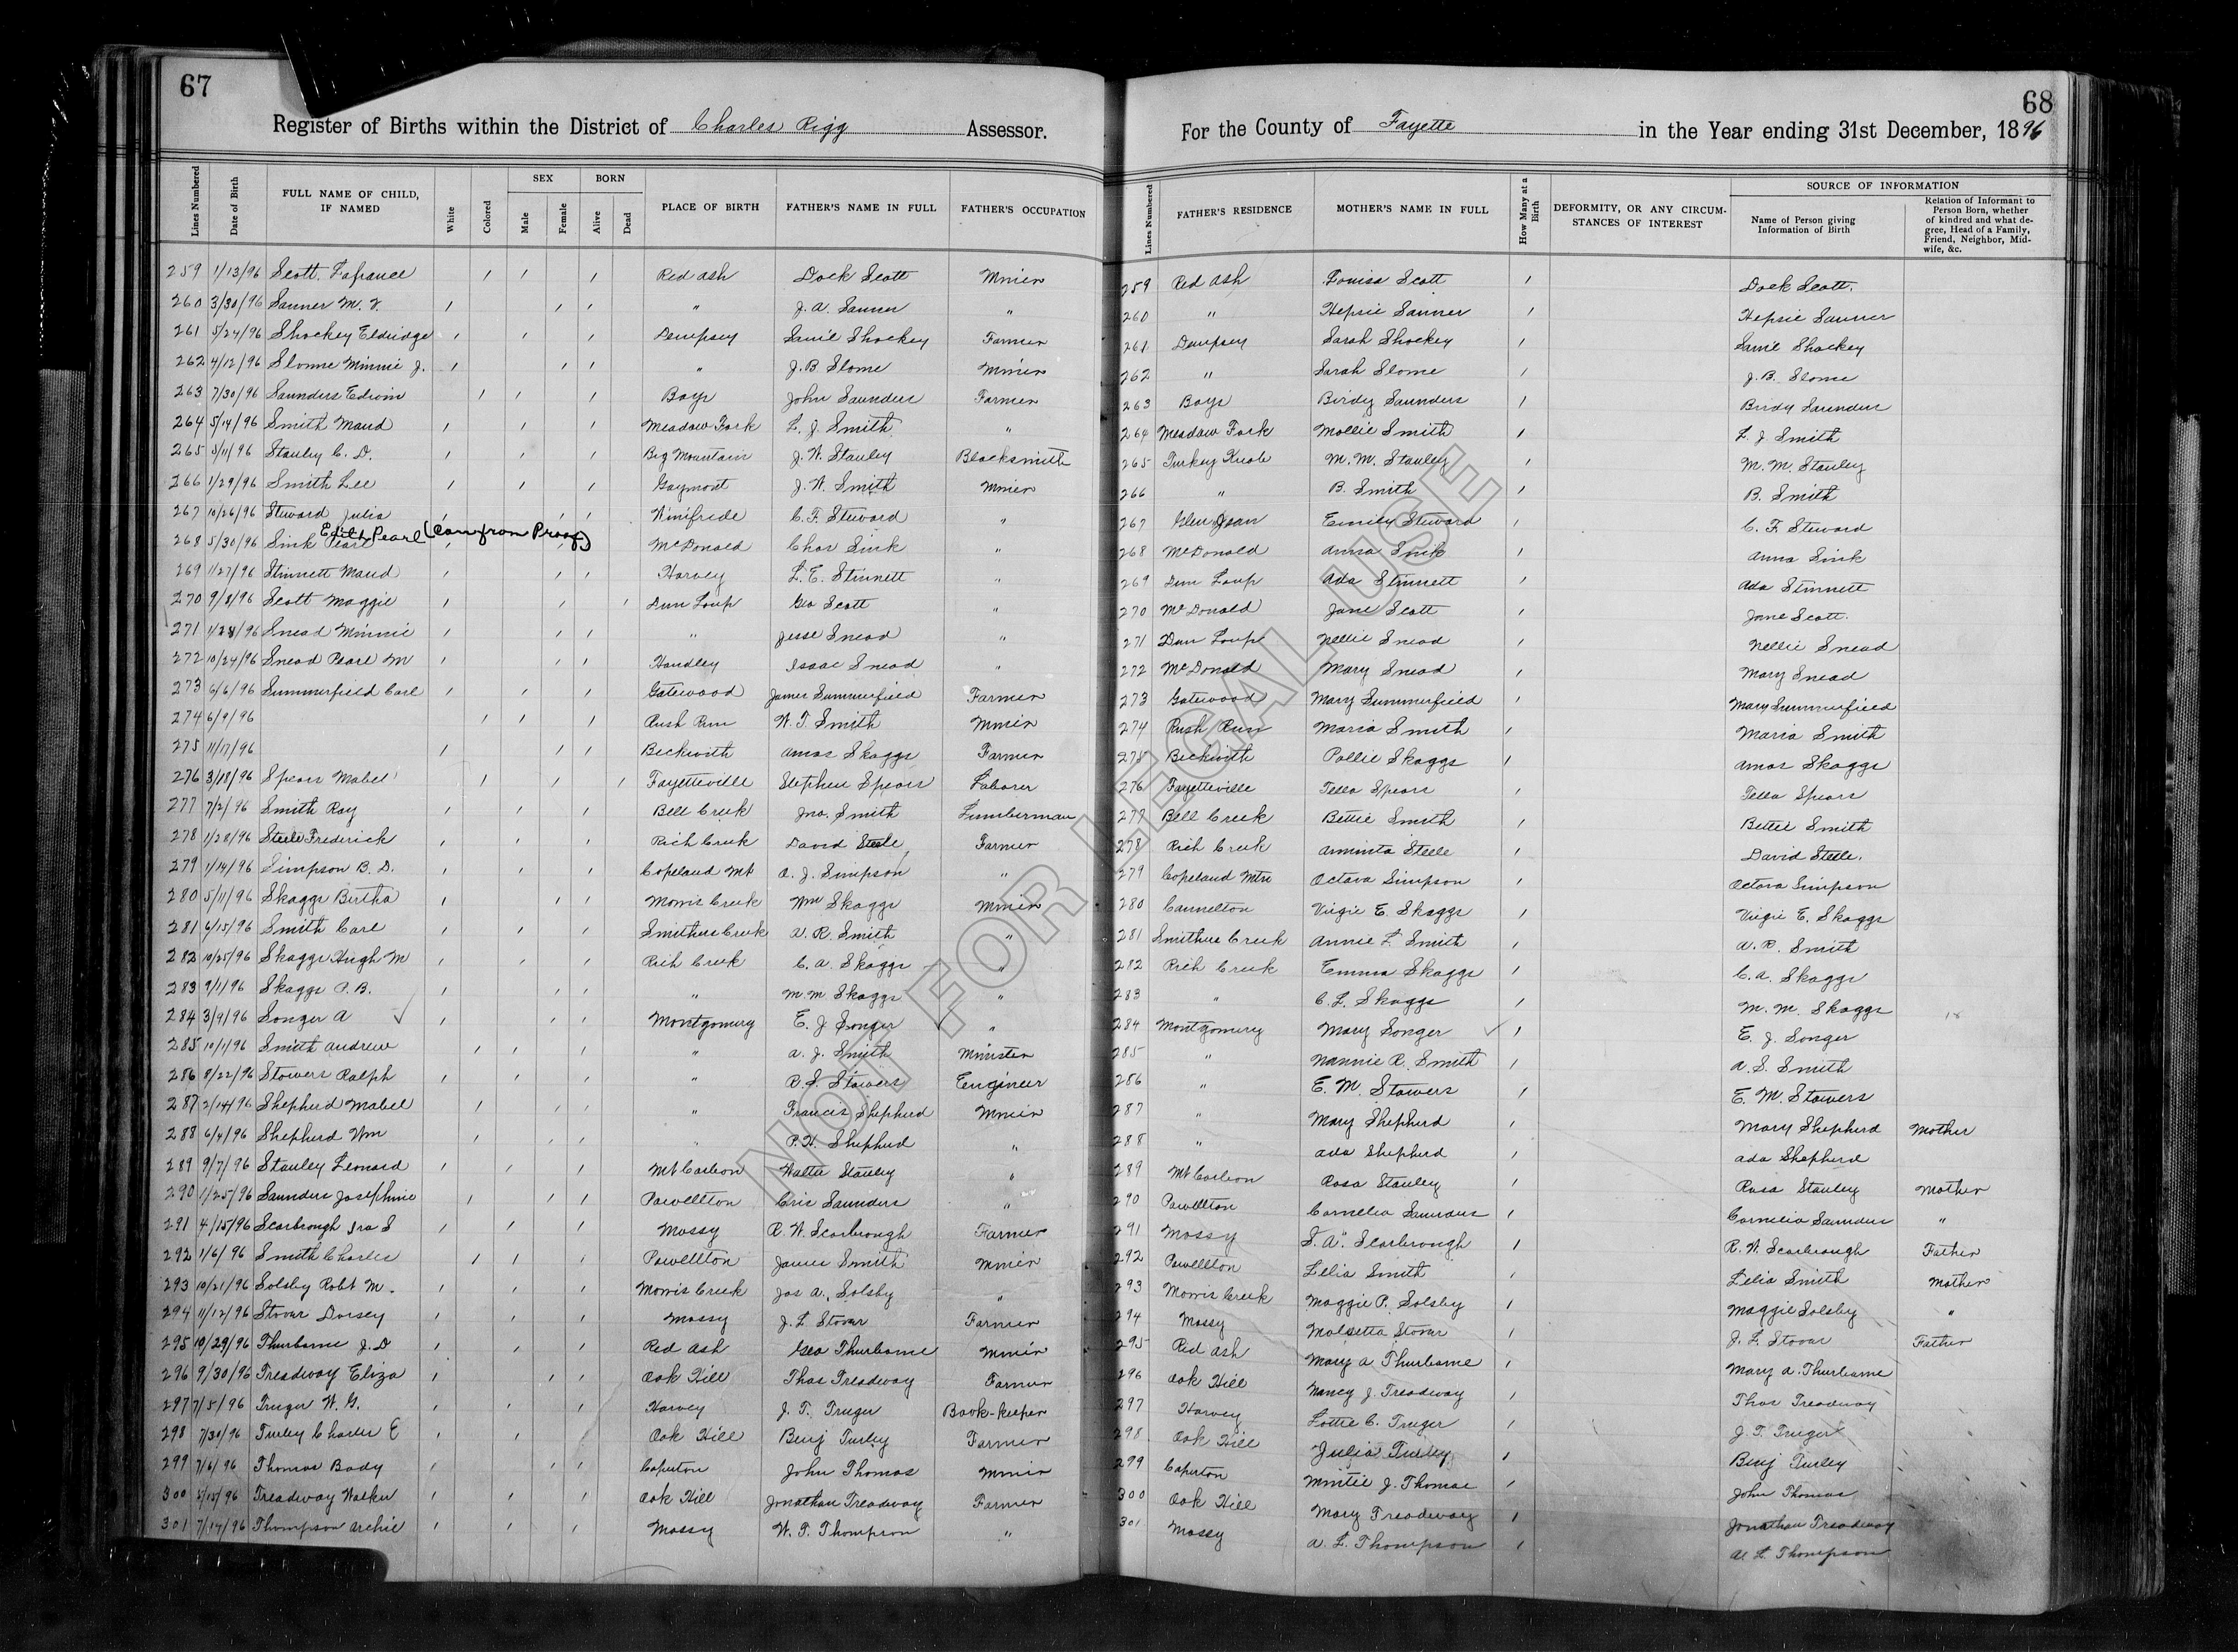 67
Register of Births within the District of Charles Rigg Assessor.
Lines Numbered | Date of Birth | FULL NAME OF CHILD, IF NAMED | White | Colored | SEX Male Female | BORN Alive Dead | PLACE OF BIRTH | FATHER'S NAME IN FULL | FATHER'S OCCUPATION
259 1/13/96 Scott. Lafrance Red Ash Dock Scott Miner
260 3/30/96 Sanner M. V. " J. A. Sanner "
261 5/24/96 Shockey Eldridge Dempsey Saml Shockey Farmer
262 4/12/96 Slonne Minnie J. " J. B Slome Miner
263 7/30/96 Saunders Edwin Boys John Saunders Farmer
264 5/14/96 Smith Maud Meadow Fork L. J. Smith "
265 5/11/96 Stanley C. D. Big Mountain J. W. Stanley Blacksmith
266 1/29/96 Smith Lee Gaymont J. W. Smith Miner
267 10/26/96 Steward Julia Winifride C. F. Steward "
Edith Pearl (Cam from Proof)
268 5/30/96 Sink Pearl McDonald Chas Sink "
269 1/27/96 Stinnett Maud Harvey L. E. Stinnett "
270 9/8/96 Scott Maggie Dun Loup Geo Scott "
271 1/28/96 Snead Minnie " Jesse Snead "
272 10/24/96 Snead Pearl M Handley Isaac Snead "
273 6/6/96 Summerfield Carl Gatewood James Summerfield Farmer
274 6/9/96 Rush Run W. T. Smith Miner
275 11/17/96 Beckwith Amos Skaggs Farmer
276 3/18/96 Spears Mabel Fayetteville Stephen Spears Laborer
277 7/2/96 Smith Ray Bell Creek Jno. Smith Lumberman
278 1/28/96 Steele Frederick Rich Creek David Steele Farmer
279 1/14/96 Simpson B. D. Copeland Mt A. J. Simpson "
280 5/11/96 Skaggs Bertha Morris Creek Wm Skaggs Miner
281 6/15/96 Smith Carl Smithers Creek A. R. Smith "
282 10/25/96 Skaggs Hugh M Rich Creek C. A. Skaggs "
283 9/1/96 Skaggs P. B. " M. M. Skaggs "
284 3/9/96 Songer A Montgomery E. J Songer "
285 10/1/96 Smith Andrew " A. J. Smith Minister
286 8/22/96 Stowers Ralph " R. S. Stowers Engineer
287 2/14/96 Shepherd Mabel " Francis Shepherd Miner
288 6/4/96 Shepherd Wm " P. H. Shepherd "
289 9/7/96 Stanley Leonard Mt Carbon Walter Stanley "
290 1/25/96 Saunders Josephine Powellton Cris Saunders "
291 4/15/96 Scarbrough Ira S Mossy R. W. Scarbrough Farmer
292 1/6/96 Smith Charles Powellton James Smith Miner
293 10/21/96 Solsby Robt M. Morris Creek Jas A. Solsby "
294 11/12/96 Stovar Dorsey Mossy J. L Stovar Farmer
295 10/29/96 Thurbame J. D Red Ash Geo Thurbame Miner
296 9/30/96 Treadway Eliza Oak Hill Thos Treadway Farmer
297 7/5/96 Truger W. G. Harvey J. T. Truger Book-keeper
298 7/30/96 Turley Charles E Oak Hill Benj Turley Farmer
299 7/6/96 Thomas Bady Caperton John Thomas Miner
300 5/15/96 Treadway Walker Oak Hill Jonathan Treadway Farmer
301 7/14/96 Thompson Archie Mossy W. T. Thompson "
68
For the County of Fayette in the Year ending 31st December, 1896
Lines Numbered | FATHER'S RESIDENCE | MOTHER'S NAME IN FULL | How Many at a Birth | DEFORMITY, OR ANY CIRCUMSTANCES OF INTEREST | SOURCE OF INFORMATION | Name of Person giving Information of Birth | Relation of Informant to Person Born, whether of kindred and what degree, Head of a Family, Friend, Neighbor, Midwife, &c.
259 Red Ash Louisa Scott 1 Dock Scott.
260 " Hepsie Sanner 1 Hepsie Sanner
261 Dempsey Sarah Shockey 1 Saml Shockey
262 " Sarah Slome 1 J. B. Slome
263 Boys Birdy Saunders 1 Birdy Saunders
264 Meadow Fork Mollie Smith 1 L. J. Smith
265 Turkey Knob M. M. Stanley 1 M. M. Stanley
266 " B. Smith 1 B. Smith
267 Glen Jean Emily Steward 1 C. F. Steward
268 McDonald Anna Sink 1 Anna Sink
269 Dun Loup Ada Stinnett 1 Ada Stinnett
270 McDonald Jane Scott 1 Jane Scott.
271 Dun Loup Nellie Snead 1 Nellie Snead
272 McDonald Mary Snead 1 Mary Snead
273 Gatewood Mary Summerfield 1 Mary Summerfield
274 Rush Run Maria Smith 1 Maria Smith
275 Beckwith Pollie Skaggs 1 Amos Skaggs
276 Fayetteville Tella Spears 1 Tella Spears
277 Bell Creek Bettie Smith 1 Bettie Smith
278 Rich Creek Arminta Steele 1 David Steele.
279 Copeland Mtn Octava Simpson 1 Octava Simpson
280 Cannelton Virgie E. Skaggs 1 Virgie E. Skaggs
281 Smithers Creek Annie L Smith 1 A. R. Smith
282 Rich Creek Emma Skaggs 1 C. A. Skaggs
283 " C. L. Skaggs 1 M. M. Skaggs
284 Montgomery Mary Songer 1 E. J. Songer
285 " Nannie R. Smith 1 A. S. Smith
286 " E. M. Stowers 1 E. M. Stowers
287 " Mary Shepherd 1 Mary Shepherd Mother
288 " Ada Shepherd 1 Ada Shepherd
289 Mt Carbon Rosa Stanley 1 Rosa Stanley Mother
290 Powellton Cornelia Saunders 1 Cornelia Saunders "
291 Mossy S. A. Scarbrough 1 R. W. Scarbrough Father
292 Powellton Lelia Smith 1 Lelia Smith Mother
293 Morris Creek Maggie P. Solsby 1 Maggie Solsby "
294 Mossy Malsetta Stovar 1 J. L. Stovar Father
295 Red Ash Mary A Thurbame 1 Mary A. Thurbame
296 Oak Hill Nancy J. Treadway 1 Thos Treadway
297 Harvey Lottie C. Truger 1 J. T. Truger
298 Oak Hill Julia Turley 1 Benj Turley
299 Caperton Mintie J. Thomas 1 John Thomas
300 Oak Hill Mary Treadway 1 Jonathan Treadway
301 Mossy A. L. Thompson 1 A. L. Thompson
NOT FOR LEGAL USE